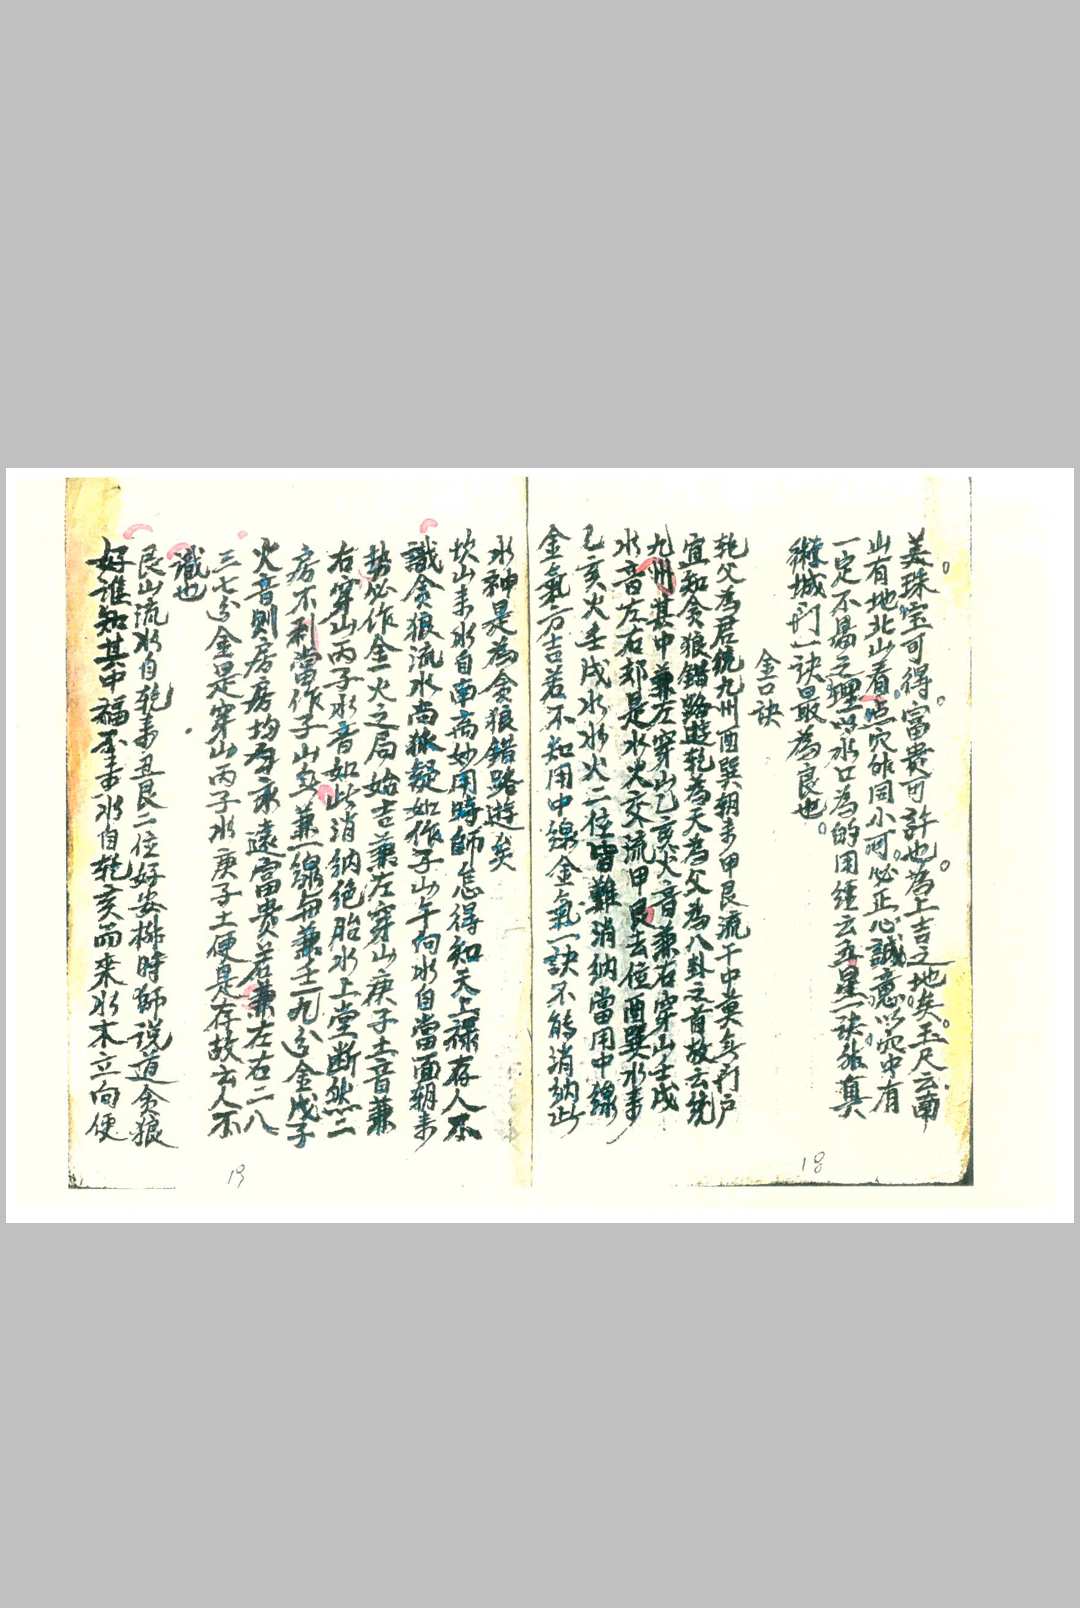 美珠宝可得。富貴可許也。為上吉之地矣。玉尺云南
山有地北山看。点穴非同小可。必正心誠意。以穴中有
一定不易之理。以水口為的用經云五星一訣非真
術城門一訣最為良也。
金口訣
乾父為君統九州酉巽朝来甲艮流干中莫与行户
宜知貪狼錯路遊乾為天為父為八卦之首故云統
九州其中兼左穿山乙亥火音兼右穿山壬戌
水音左右却是水火交流甲艮去位酉巽水来
乙亥火壬戌水水火二位皆難消納當用中線
金氣方吉若不知用中線金氣一訣不能消納此
水神是為貪狼錯路遊矣
坎山来水自南高妙用時師怎得知天上祿存人不
識貪狼流水尚猴疑如作子山午向水自當面朝来
勢必作金火之局始吉兼左穿山庚子土音兼
右穿山丙子水音如此消納絕胎水上堂斷然二
房不利當作子山與兼一線每兼壬一九分金戊子
火音則居房均勻永遠富貴若兼左右二八
三七分金是穿山丙子水庚子土便是存故云人不
識也
艮山流水自乾来丑艮二位好安排時師說道貪狼
好誰知其中福不来水自乾亥而來水木立向便
18
19